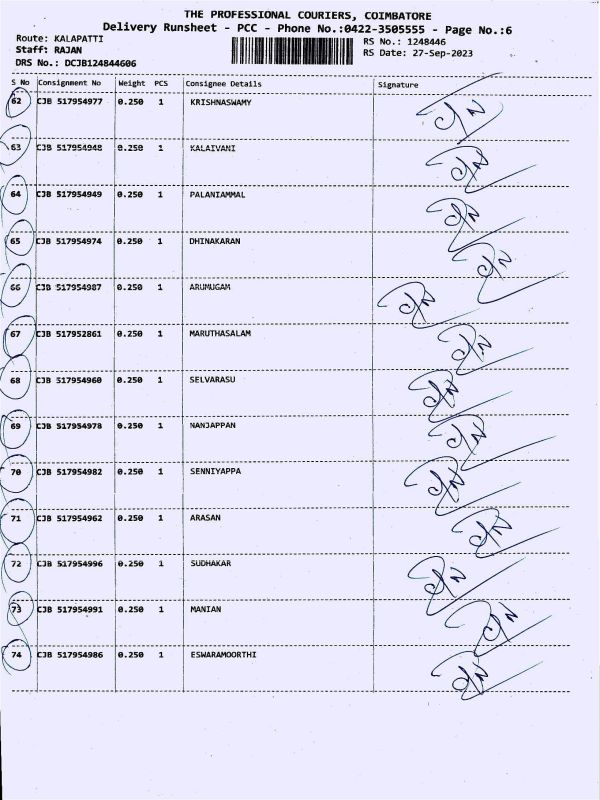 THE PROFESSIONAL COURIERS, COIMBATORE
Delivery Runsheet - PCC - Phone No.:0422-3505555 - Page No.:6
Route: KALAPATTI
Staff: RAJAN
DRS No.: DCJB124844606
RS No.: 1248446
RS Date: 27-Sep-2023
S No Consignment No Weight PCS Consignee Details Signature
62 CJB 517954977 0.250 1 KRISHNASWAMY
63 CJB 517954948 0.250 1 KALAIVANI
64 CJB 517954949 0.250 1 PALANIAMMAL
65 CJB 517954974 0.250 1 DHINAKARAN
66 CJB 517954987 0.250 1 ARUMUGAM
67 CJB 517952861 0.250 1 MARUTHASALAM
68 CJB 517954960 0.250 1 SELVARASU
69 CJB 517954978 0.250 1 NANJAPPAN
70 CJB 517954982 0.250 1 SENNIYAPPA
71 CJB 517954962 0.250 1 ARASAN
72 CJB 517954996 0.250 1 SUDHAKAR
73 CJB 517954991 0.250 1 MANIAN
74 CJB 517954986 0.250 1 ESWARAMOORTHI